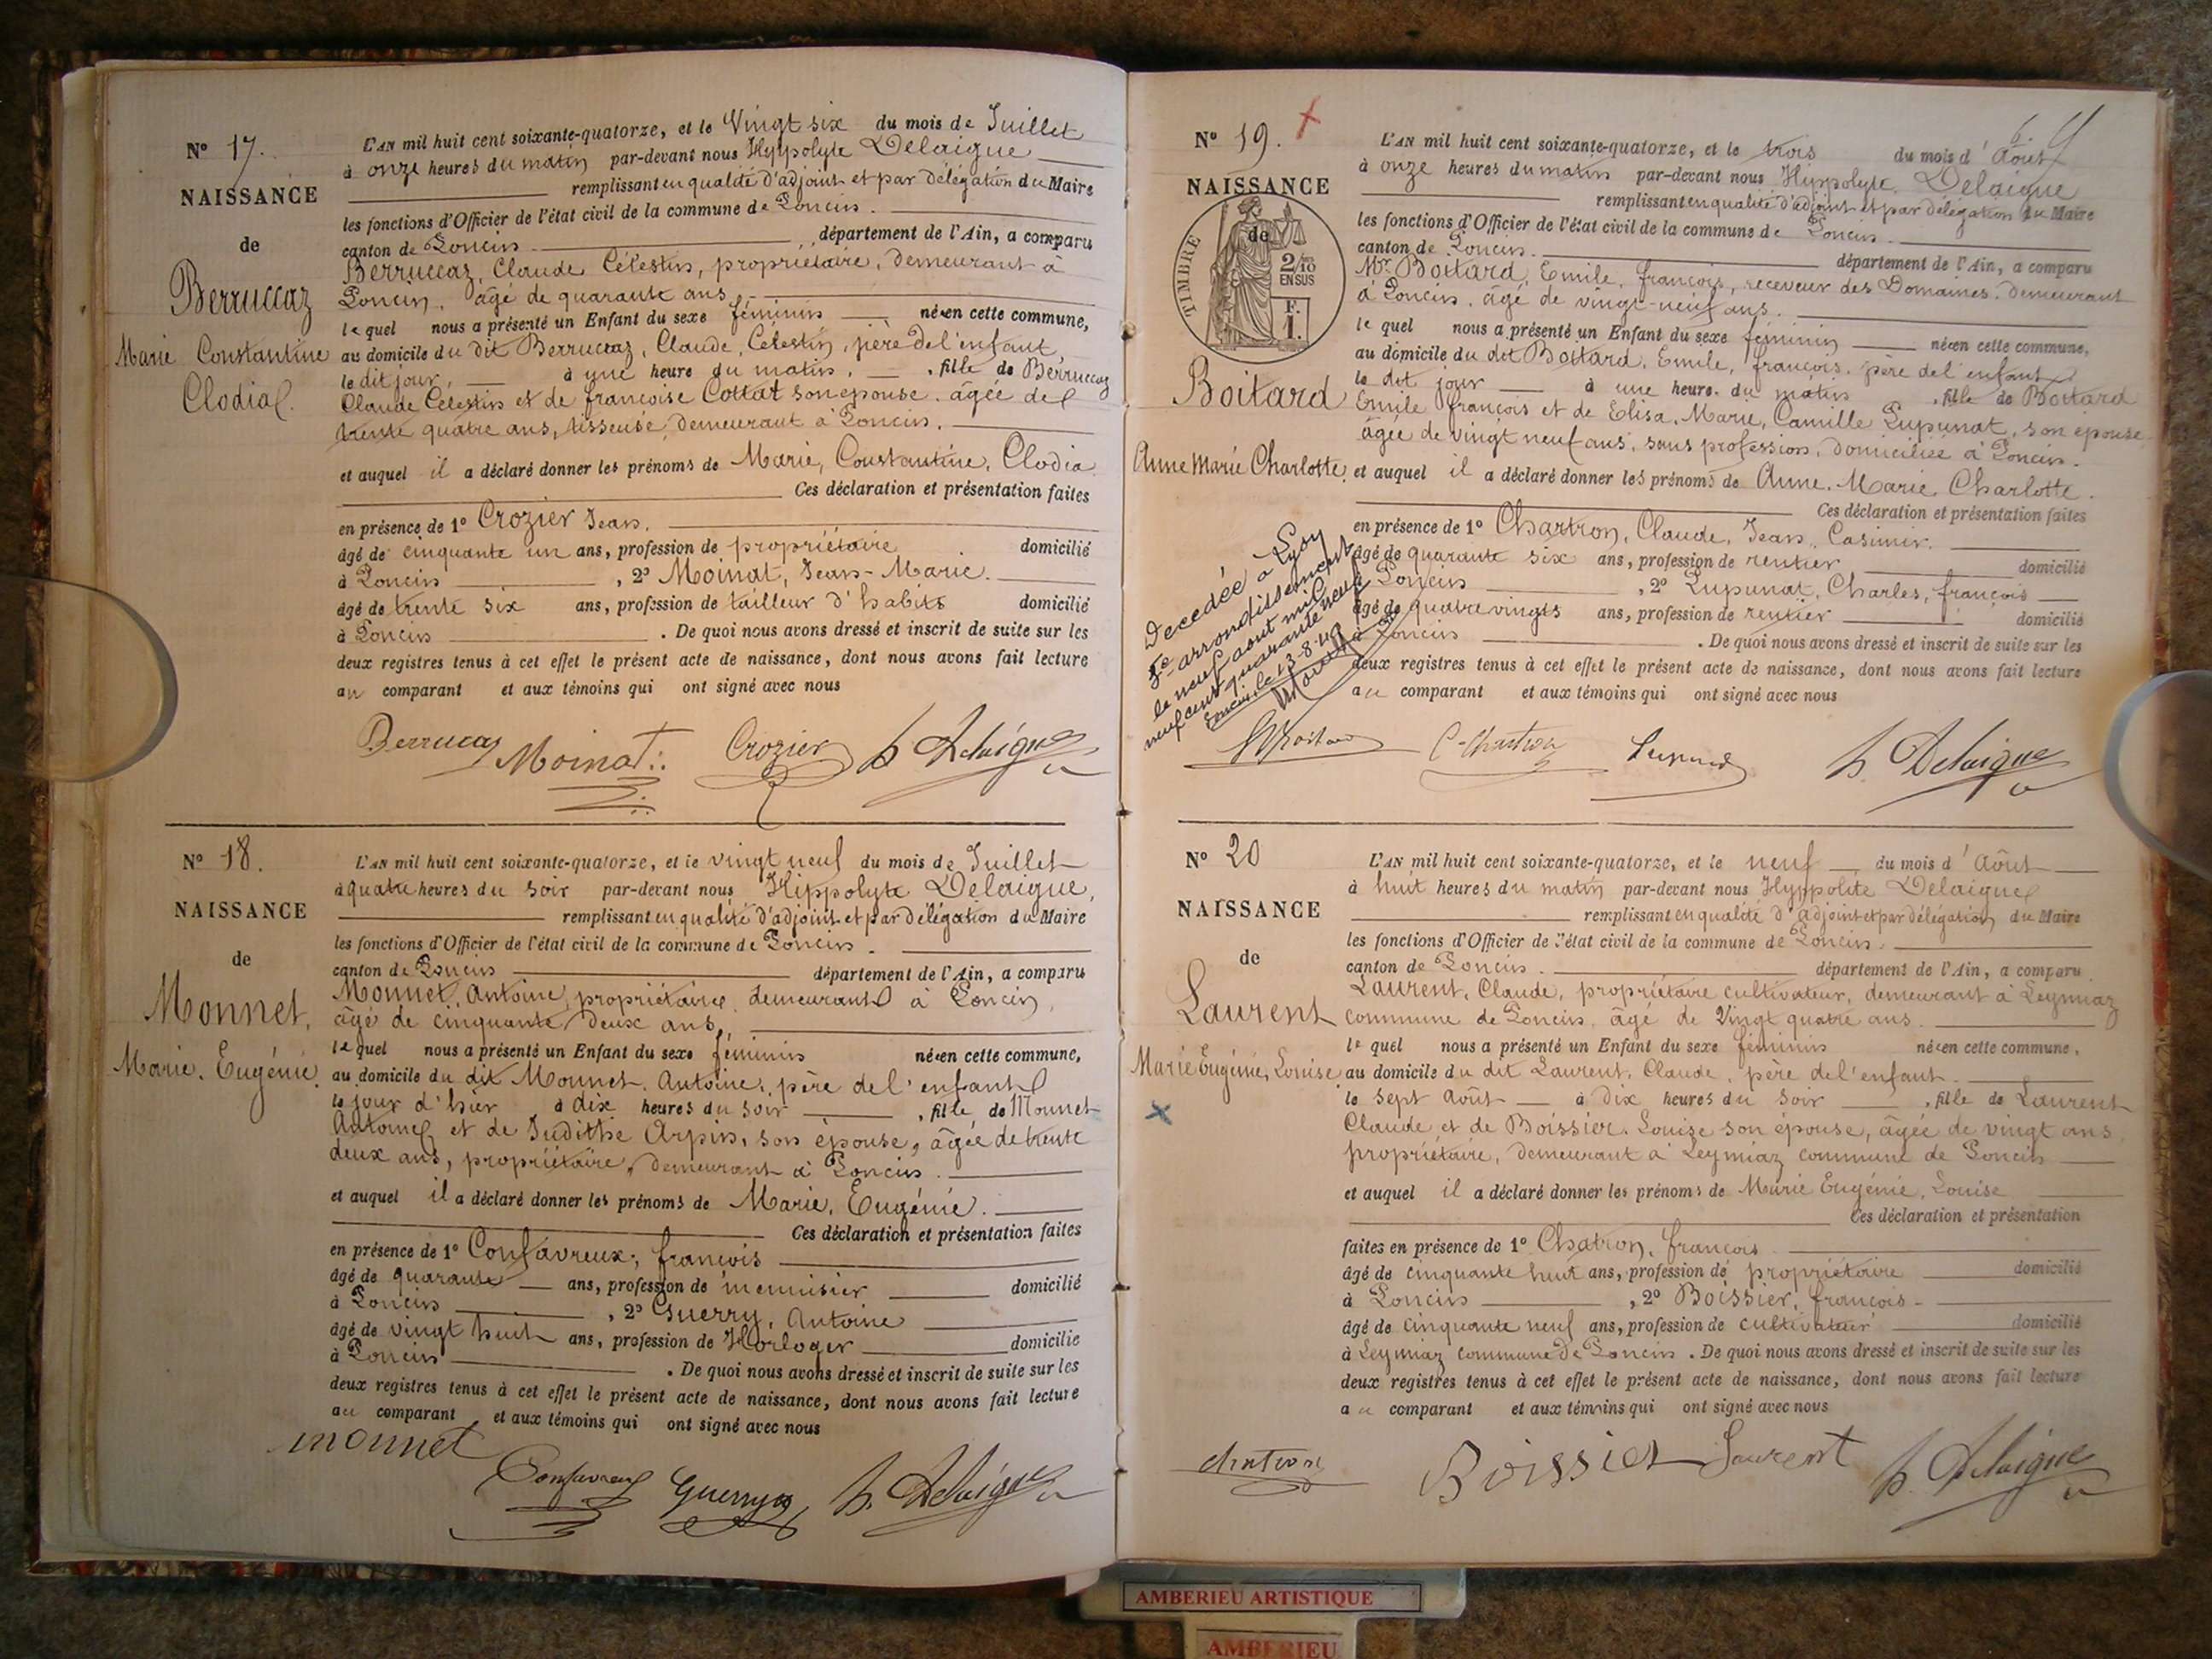 Nº 17.
NAISSANCE
de
Berruccaz
Marie Constantine
Clodia
L'AN mil huit cent soixante-quatorze, et le Vingt six du mois de Juillet
à onze heures du matin par-devant nous Hyppolyte Delaigue
remplissant en qualité d'adjoint et par délégation du Maire
les fonctions d'Officier de l'état civil de la commune de Poncin.
canton de Poncin département de l'Ain, a comparu
Berruccaz, Claude Célestin, propriétaire, demeurant à
Poncin, âgé de quarante ans,
lequel nous a présenté un Enfant du sexe féminin née en cette commune,
au domicile du dit Berruccaz, Claude, Célestin, père de l'enfant,
le dit jour, à une heure du matin, fille de Berruccaz
Claude Célestin et de françoise Cottat son épouse, âgée de
trente quatre ans, tisseuse, demeurant à Poncin.
et auquel il a déclaré donner les prénoms de Marie, Constantine, Clodia
Ces déclaration et présentation faites
en présence de 1º Crozier Jean,
âgé de cinquante un ans, profession de propriétaire domicilié
à Poncin, 2º Moinat, Jean-Marie.
âgé de trente six ans, profession de tailleur d'habits domicilié
à Poncin. De quoi nous avons dressé et inscrit de suite sur les
deux registres tenus à cet effet le présent acte de naissance, dont nous avons fait lecture
au comparant et aux témoins qui ont signé avec nous
Berrucaz Moinat Crozier h Delaigue
Nº 18.
NAISSANCE
de
Monnet,
Marie, Eugénie.
L'AN mil huit cent soixante-quatorze, et le vingt neuf du mois de Juillet
à quatre heures du soir par-devant nous Hippolyte Delaigue,
remplissant en qualité d'adjoint et par délégation du Maire
les fonctions d'Officier de l'état civil de la commune de Poncin.
canton de Poncin département de l'Ain, a comparu
Monnet, Antoine, propriétaire, demeurant à Poncin,
âgé de cinquante deux ans,
lequel nous a présenté un Enfant du sexe féminin née en cette commune,
au domicile du dit Monnet, Antoine, père de l'enfant
le jour d'hier à dix heures du soir, fille de Monnet
Antoine et de Judithe Arpin, son épouse, âgée de trente
deux ans, propriétaire, demeurant à Poncin.
et auquel il a déclaré donner les prénoms de Marie, Eugénie.
Ces déclaration et présentation faites
en présence de 1º Confavreux, françois
âgé de quarante ans, profession de menuisier domicilié
à Poncin, 2º Guerry, Antoine
âgé de vingt huit ans, profession de Horloger domicilié
à Poncin. De quoi nous avons dressé et inscrit de suite sur les
deux registres tenus à cet effet le présent acte de naissance, dont nous avons fait lecture
au comparant et aux témoins qui ont signé avec nous
monnet
Confavreux Guerry h. Delaigue
Nº 19.
NAISSANCE
de
TIMBRE
2/10
EN SUS
F.
1.
Boitard
Anne Marie Charlotte
Décédée à Lyon
5e arrondissement
le neuf aout mil
neuf cent quarante neuf
Poncin, le 13-8-49
L'AN mil huit cent soixante-quatorze, et le trois du mois d'Août
à onze heures du matin par-devant nous Hyppolyte Delaigue
remplissant en qualité d'adjoint et par délégation du Maire
les fonctions d'Officier de l'état civil de la commune de Poncin.
canton de Poncin. département de l'Ain, a comparu
Mr Boitard, Emile, françois, receveur des Domaines, demeurant
à Poncin, âgé de vingt-neuf ans.
lequel nous a présenté un Enfant du sexe féminin née en cette commune,
au domicile du dit Boitard, Emile, françois, père de l'enfant
le dit jour à une heure du matin, fille de Boitard
Emile françois et de Elisa, Marie, Camille Lupunat, son épouse
âgée de vingt neuf ans, sans profession, domiciliée à Poncin.
et auquel il a déclaré donner les prénoms de Anne, Marie Charlotte.
Ces déclaration et présentation faites
en présence de 1º Chartron, Claude, Jean, Casimir.
âgé de quarante six ans, profession de rentier domicilié
à Poncin, 2º Lupunat, Charles, françois
âgé de quatre vingts ans, profession de rentier domicilié
à Poncin. De quoi nous avons dressé et inscrit de suite sur les
deux registres tenus à cet effet le présent acte de naissance, dont nous avons fait lecture
au comparant et aux témoins qui ont signé avec nous
Boitard C. Chartron Lupunat h. Delaigue
Nº 20
NAISSANCE
de
Laurent
Marie Eugénie, Louise
L'AN mil huit cent soixante-quatorze, et le neuf du mois d'Août
à huit heures du matin par-devant nous Hyppolite Delaigue
remplissant en qualité d'adjoint et par délégation du Maire
les fonctions d'Officier de l'état civil de la commune de Poncin.
canton de Poncin. département de l'Ain, a comparu
Laurent, Claude, propriétaire cultivateur, demeurant à Leymiaz
commune de Poncin, âgé de Vingt quatre ans.
lequel nous a présenté un Enfant du sexe féminin née en cette commune,
au domicile du dit Laurent, Claude, père de l'enfant.
le sept Août à dix heures du soir, fille de Laurent
Claude et de Boissier, Louise son épouse, âgée de vingt ans,
propriétaire, demeurant à Leymiaz commune de Poncin
et auquel il a déclaré donner les prénoms de Marie Eugénie, Louise
Ces déclaration et présentation
faites en présence de 1º Chatron, françois
âgé de cinquante huit ans, profession de propriétaire domicilié
à Poncin, 2º Boissier, françois
âgé de cinquante neuf ans, profession de cultivateur domicilié
à Leymiaz commune de Poncin. De quoi nous avons dressé et inscrit de suite sur les
deux registres tenus à cet effet le présent acte de naissance, dont nous avons fait lecture
au comparant et aux témoins qui ont signé avec nous
chatron Boissier Laurent h. Delaigue
AMBERIEU ARTISTIQUE
AMBERIEU